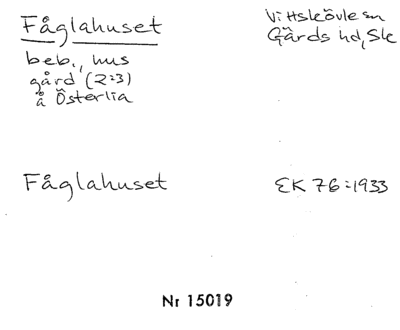 Fåglahuset
Vittskövle sn
Gärds hd, Sk
beb., hus
gård (2:3)
å Österlia
Fåglahuset
EK 76:1933
Nr 15019